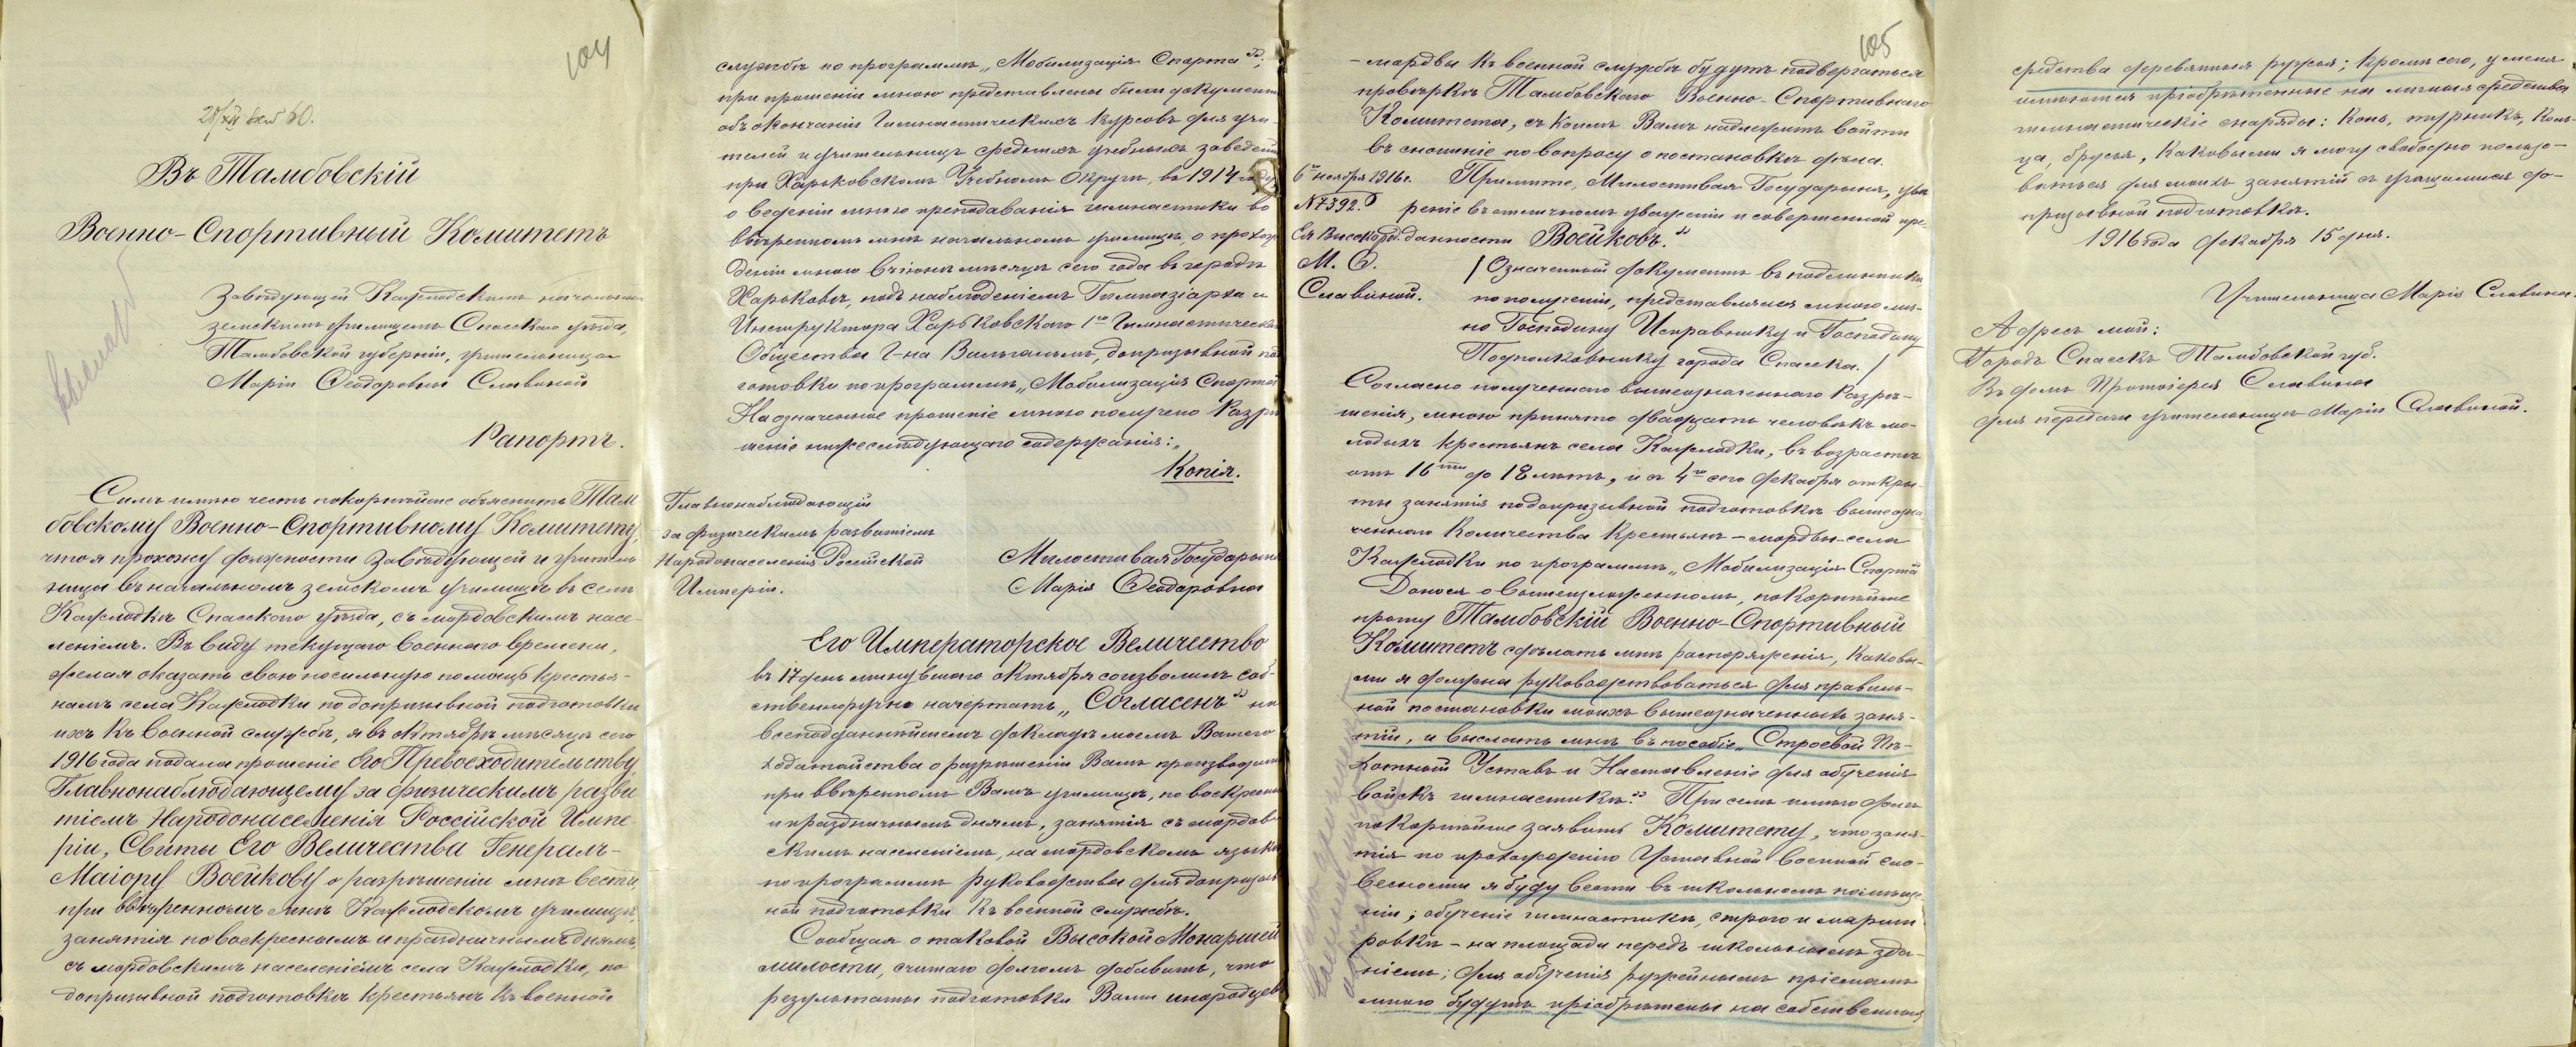 104
Въ Тамбовскій
Военно-Спортивный Комитетъ
Завѣдующей Кажлодскимъ начальнымъ
земскимъ училищемъ Спасскаго уѣзда,
Тамбовской губерніи, учительницы
Маріи Ѳеодоровны Славиной
Рапортъ.
Симъ имѣю честь покорнѣйше объяснить Там
бовскому Военно-Спортивному Комитету,
что я прохожу должности Завѣдующей и учитель
ницы въ начальномъ земскомъ училищѣ въ селѣ
Кажлодкѣ Спасскаго уѣзда, съ мордовскимъ насе-
леніемъ. Въ виду текущаго военнаго времени,
желая оказать свою посильную помощь крестья-
намъ села Кажлодки по допризывной подготовки
ихъ къ военной службѣ, я въ октябрѣ мѣсяцѣ сего
1916 года подала прошеніе Его Превосходительству,
Главнонаблюдающему за физическимъ разви
тіемъ Народонаселенія Россійской Импе-
ріи, Свиты Его Величества Генералъ-
Маіору Воейкову о разрѣшеніи мнѣ вести,
при ввѣренномъ мнѣ Кажлодскомъ училищѣ,
занятія по воскреснымъ и праздничнымъ днямъ,
съ мордовскимъ населеніемъ села Кажлодки, по
допризывной подготовкѣ крестьянъ къ военной
службѣ по программѣ „Мобилизація Спорта";
при прошеніи мною представлены были документы
объ окончаніи Гимнастическихъ Курсовъ для учи-
телей и учительницъ среднихъ учебныхъ заведеній
при Харьковскомъ Учебномъ Округѣ, въ 1914 году
о веденіи мною преподаванія гимнастики во
ввѣренномъ мнѣ начальномъ училищѣ, о прохож
деніи мною въ іюнѣ мѣсяцѣ сего года въ городѣ
Харьковѣ, подъ наблюденіемъ Гимназіарха и
Инструктора Харьковскаго 1го Гимнастическаго
Общества Г-на Вильгельмъ, допризывной под
готовки по программѣ „Мобилизація Спорта"
На означенное прошеніе мною получено Разрѣ
шеніе нижеслѣдующаго содержанія:„
Копія.
Главнонаблюдающій
за физическимъ развитіемъ
Народонаселенія Россійской
Имперіи.
Милостивая Государыня
Марія Ѳеодоровна
Его Императорское Величество
въ 17 день минувшаго октября соизволилъ соб-
ственноручно начертать „Согласенъ" на
всеподданнѣйшемъ докладѣ моемъ Вашего
ходатайства о разрѣшеніи Вамъ производить
при ввѣренномъ Вамъ училищѣ, по воскреснымъ
и праздничнымъ днямъ, занятія съ мордов-
скимъ населеніемъ, на мордовскомъ языкѣ
по программѣ руководства для допризыв
ной подготовки къ военной службѣ.
Сообщая о таковой Высокой Монаршей
милости, считаю долгомъ добавить, что
результаты подготовки Вами инородцевъ
105
-мордвы къ военной службѣ будутъ подвергаться
провѣркѣ Тамбовскаго Военно-Спортивнаго
Комитета, съ коимъ Вамъ надлежитъ войти
въ сношеніе по вопросу о постановкѣ дѣла.
6го ноября 1916 г.
№ 7392.
Ея Высокобл.
М. Ѳ.
Славиной.
Примите, Милостивая Государыня, увѣ
реніе въ отличномъ уваженіи и совершенной пре-
данности Воейковъ."
/Означенный документъ въ подлинникѣ
по полученіи, представлялся мною лич-
но Господину Исправнику и Господину
Подполковнику города Спасска./
Согласно полученнаго вышеозначеннаго Разрѣ-
шенія, мною принято двадцать человѣкъ мо-
лодыхъ крестьянъ села Кажлодки, въ возрастѣ
отъ 16ти до 18 лѣтъ, и съ 4го сего декабря откры-
ты занятія по допризывной подготовкѣ вышеозна
ченнаго количества крестьянъ - мордвы села
Кажлодки по программѣ „Мобилизація Спорта
Донося о вышеизложенномъ, покорнѣйше
прошу Тамбовскій Военно-Спортивный
Комитетъ сдѣлать мнѣ распоряженія, каковы-
ми я должна руководствоваться для правиль-
ной постановки моихъ вышеозначенныхъ заня-
тій, и выслать мнѣ въ пособіе „Строевой Пѣ-
хотный Уставъ и Наставленіе для обученія
войскъ гимнастикѣ." При семъ имѣю долгъ
покорнѣйше заявить Комитету, что заня-
тія по прохожденію Уставной военной сло-
весности я буду вести въ школьномъ помѣще-
ніи; обученіе гимнастикѣ, строю и марши
ровкѣ - на площади передъ школьнымъ зда-
ніемъ; для обученія ружейнымъ пріемамъ
мною будутъ пріобрѣтены на собственныя
средства деревянныя ружья; кромѣ сего, у меня
имѣются пріобрѣтенные на личныя средства
гимнастическіе снаряды: конь, турникъ, коль-
ца, брусья, каковыми я могу свободно пользо-
ваться для моихъ занятій съ учащимися до-
призывной подготовкѣ.
1916 года декабря 15 дня.
Учительница Марія Славина.
Адресъ мой:
Городъ Спасскъ Тамбовской губ.
Въ домъ Протоіерея Славина
для передачи учительницѣ Маріи Славиной.